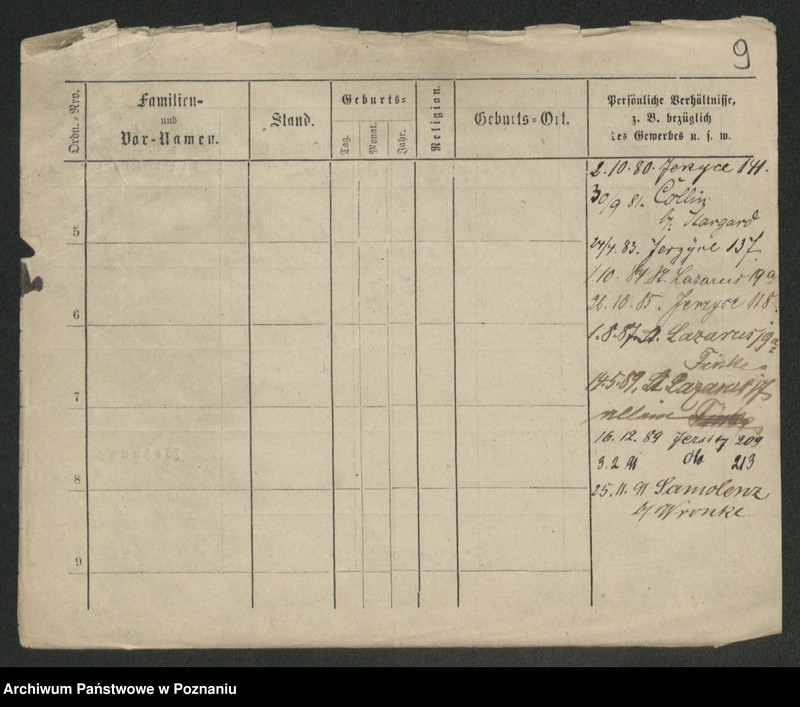 9
Ordn.=Nro.
Familien-
und
Vor-Namen.
Stand.
Geburts=
Tag.
Monat.
Jahr.
Religion.
Geburts=Ort.
Persönliche Verhältnisse,
z. B. bezüglich
des Gewerbes u. s. w.
2.10.80. Jerzyce 141.
30/9 81. Cöllin
b/ Stargard
5
24/4.83. Jerzyce 137
1 10. 84 St. Lazarus 19a
26.10.85. Jerzyce 118.
6
1.8.87. St. Lazarus 19a
Finke
14.5.89. St. Lazarus
7
16.12.89 Jersitz 209
3.2.91 dto 213
8
25.11.91 Samolenz
b/ Wronke
9
Archiwum Państwowe w Poznaniu